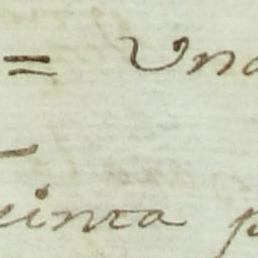 = Una
einta p